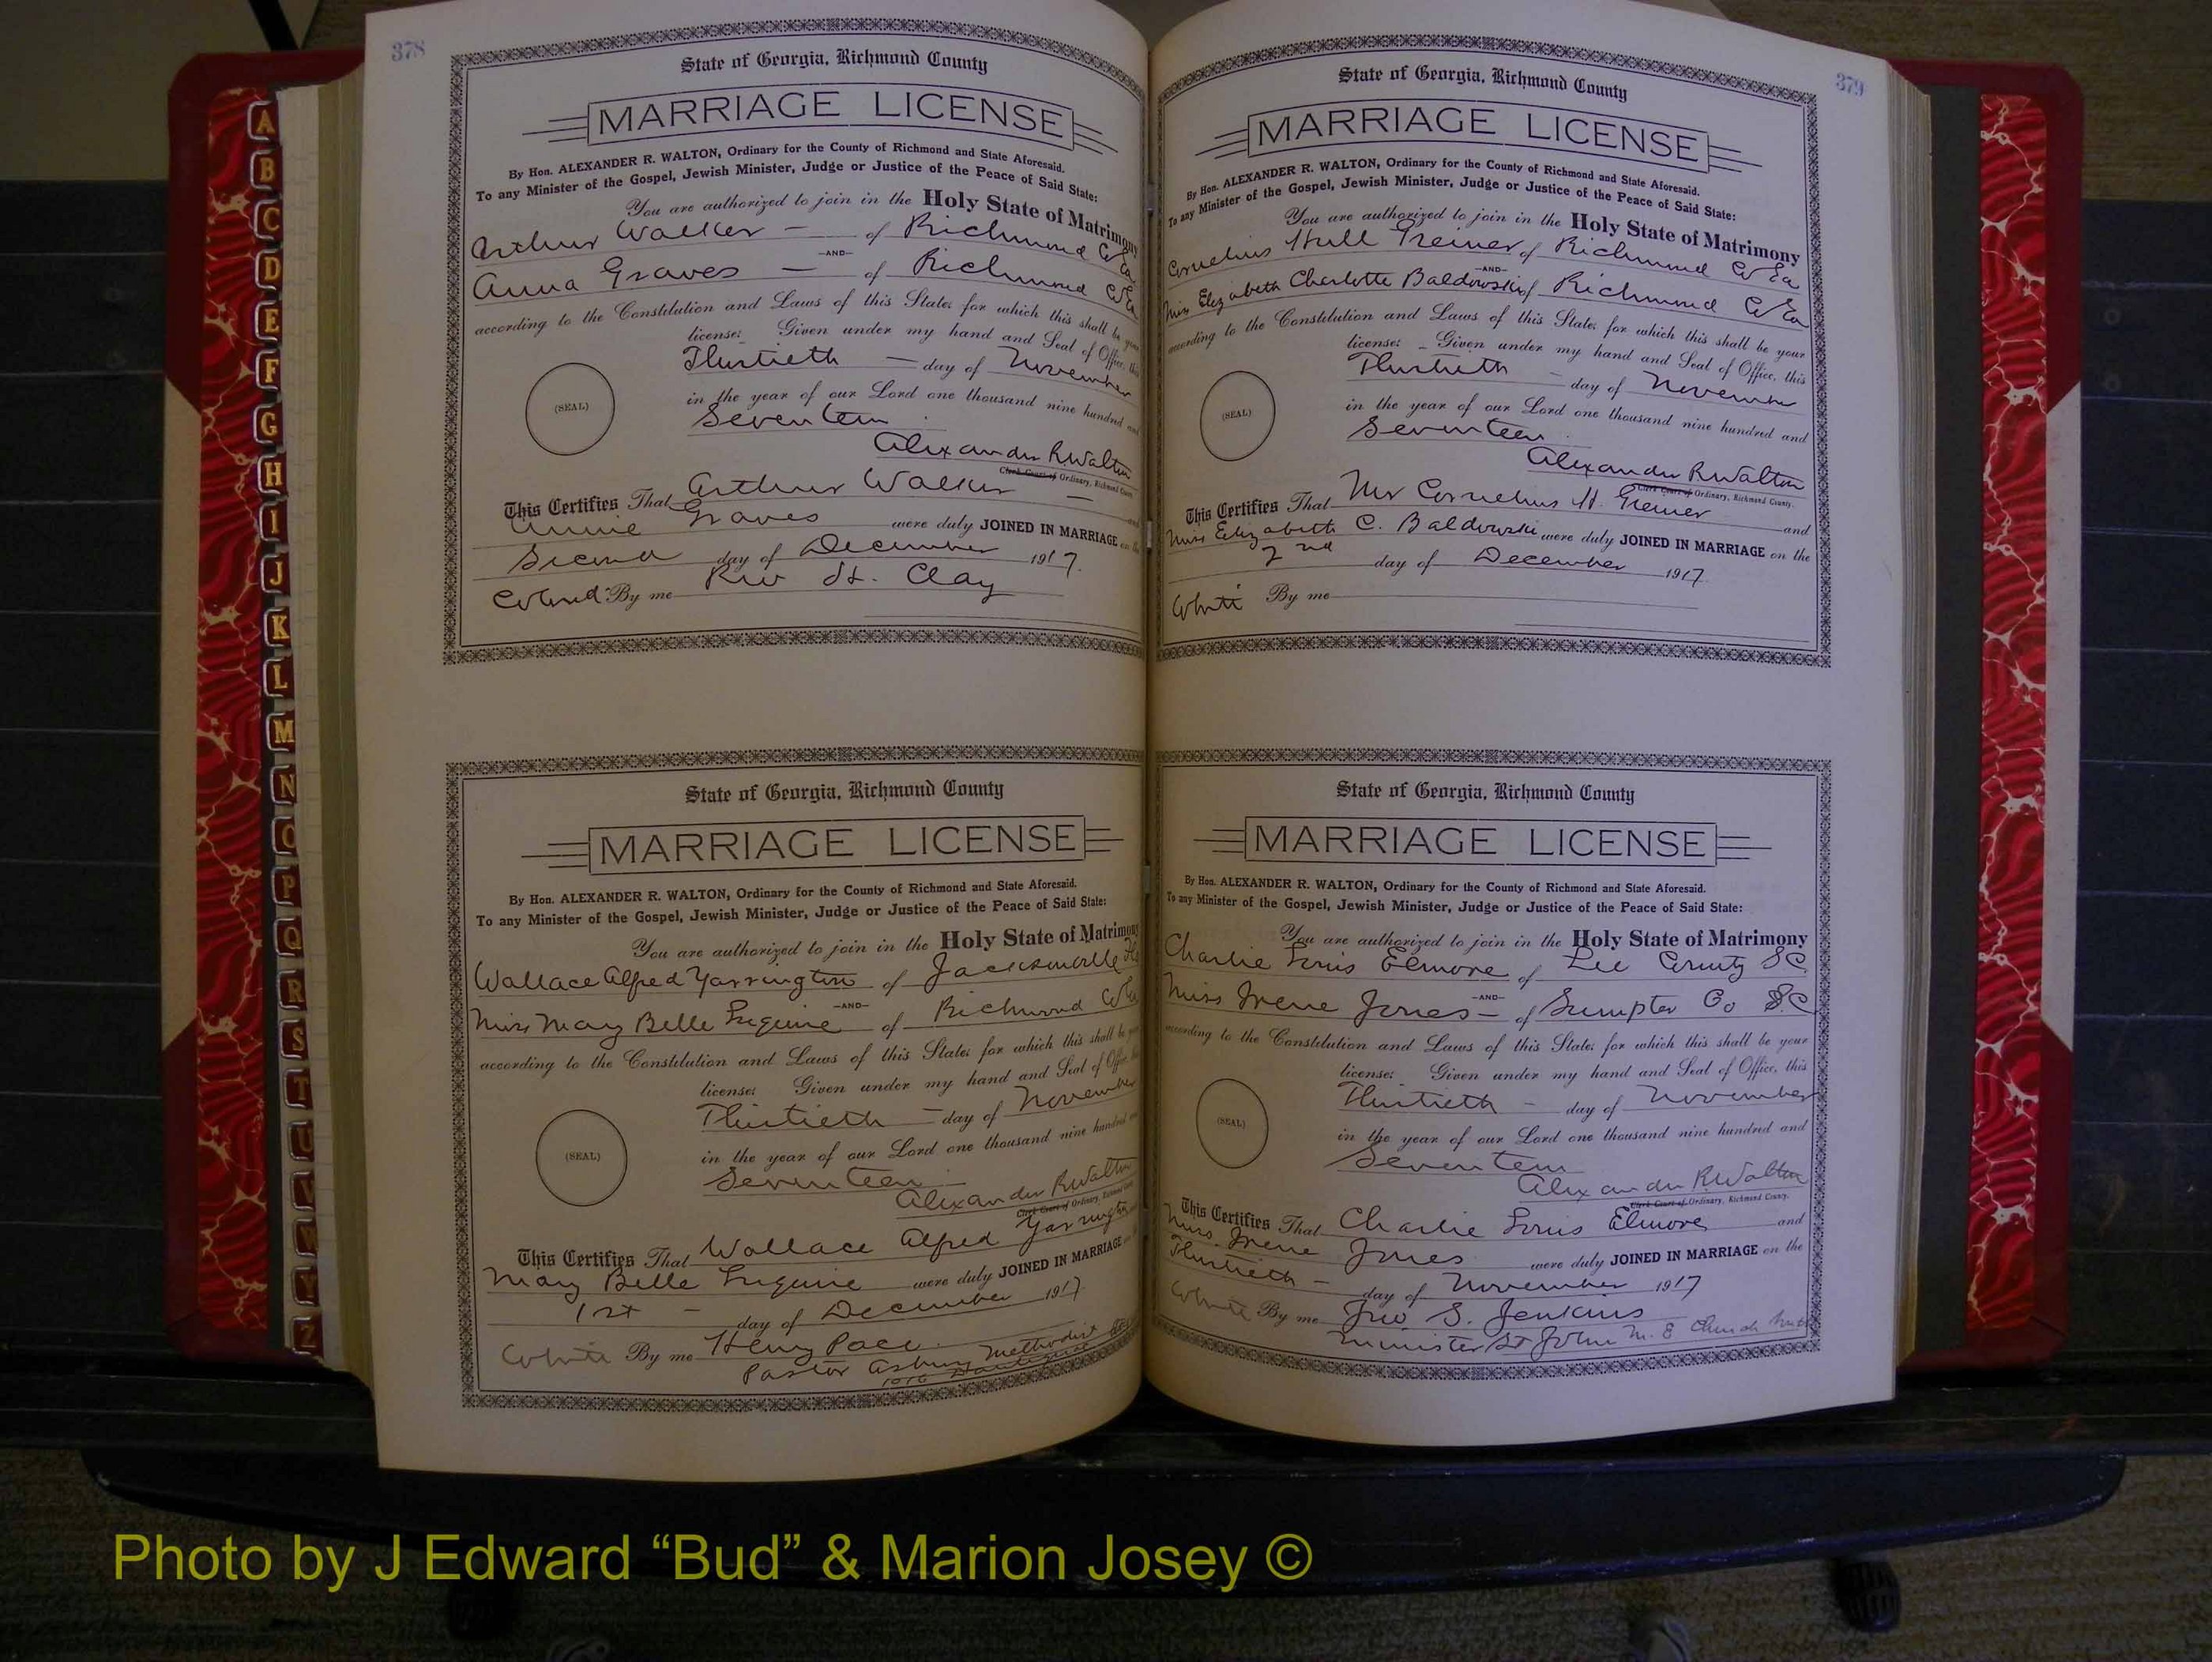 378
State of Georgia, Richmond County
MARRIAGE LICENSE
By Hon. ALEXANDER R. WALTON, Ordinary for the County of Richmond and State Aforesaid.
To any Minister of the Gospel, Jewish Minister, Judge or Justice of the Peace of Said State:
You are authorized to join in the Holy State of Matrimony
Arthur Walker - of Richmond Co Ga
-AND-
Anna Graves - of Richmond Co Ga
according to the Constitution and Laws of this State; for which this shall be your
license: Given under my hand and Seal of Office, this
Thirtieth - day of November
(SEAL)
in the year of our Lord one thousand nine hundred and
Seventeen
Alexander R Walton
Clerk Court of Ordinary, Richmond County.
This Certifies That Arthur Walker -
Annie Graves were duly JOINED IN MARRIAGE on the
Second day of December 1917.
Colored By me Rev St. Clay
State of Georgia, Richmond County
MARRIAGE LICENSE
By Hon. ALEXANDER R. WALTON, Ordinary for the County of Richmond and State Aforesaid.
To any Minister of the Gospel, Jewish Minister, Judge or Justice of the Peace of Said State:
You are authorized to join in the Holy State of Matrimony
Wallace Alfred Yarrington of Jacksonville Fla
-AND-
Miss Mary Belle of Richmond Co Ga
according to the Constitution and Laws of this State; for which this shall be your
license: Given under my hand and Seal of Office, this
Thirtieth - day of November
(SEAL)
in the year of our Lord one thousand nine hundred and
Seventeen
Alexander R Walton
Clerk Court of Ordinary, Richmond County.
This Certifies That Wallace Alfred Yarrington
Mary Belle were duly JOINED IN MARRIAGE on
1st - day of December 1917
White By me Henry Pace
Pastor Asbury Methodist
379
State of Georgia, Richmond County
MARRIAGE LICENSE
By Hon. ALEXANDER R. WALTON, Ordinary for the County of Richmond and State Aforesaid.
To any Minister of the Gospel, Jewish Minister, Judge or Justice of the Peace of Said State:
You are authorized to join in the Holy State of Matrimony
Cornelius Hull Greiner of Richmond Co Ga
-AND-
Miss Elizabeth Charlotte Baldowski of Richmond Co Ga
according to the Constitution and Laws of this State; for which this shall be your
license: Given under my hand and Seal of Office, this
Thirtieth - day of November
(SEAL)
in the year of our Lord one thousand nine hundred and
Seventeen
Alexander R Walton
Clerk Court of Ordinary, Richmond County.
This Certifies That Mr Cornelius H. Greiner and
Miss Elizabeth C. Baldowski were duly JOINED IN MARRIAGE on the
2nd day of December 1917.
White By me
State of Georgia, Richmond County
MARRIAGE LICENSE
By Hon. ALEXANDER R. WALTON, Ordinary for the County of Richmond and State Aforesaid.
To any Minister of the Gospel, Jewish Minister, Judge or Justice of the Peace of Said State:
You are authorized to join in the Holy State of Matrimony
Charlie Louis Elmore of Lee County SC
-AND-
Miss Irene Jones - of Sumpter Co S.C
according to the Constitution and Laws of this State; for which this shall be your
license: Given under my hand and Seal of Office, this
Thirtieth - day of November
(SEAL)
in the year of our Lord one thousand nine hundred and
Seventeen
Alexander R Walton
Clerk Court of Ordinary, Richmond County.
This Certifies That Charlie Louis Elmore and
Miss Irene Jones were duly JOINED IN MARRIAGE on the
Thirtieth - day of November 1917
White By me Jno S. Jenkins
Minister St John M. E Church
A
B
C
D
E
F
G
H
I
J
K
L
M
N
O
P
Q
R
S
T
U
V
W
Y
Z
Photo by J Edward “Bud” & Marion Josey ©